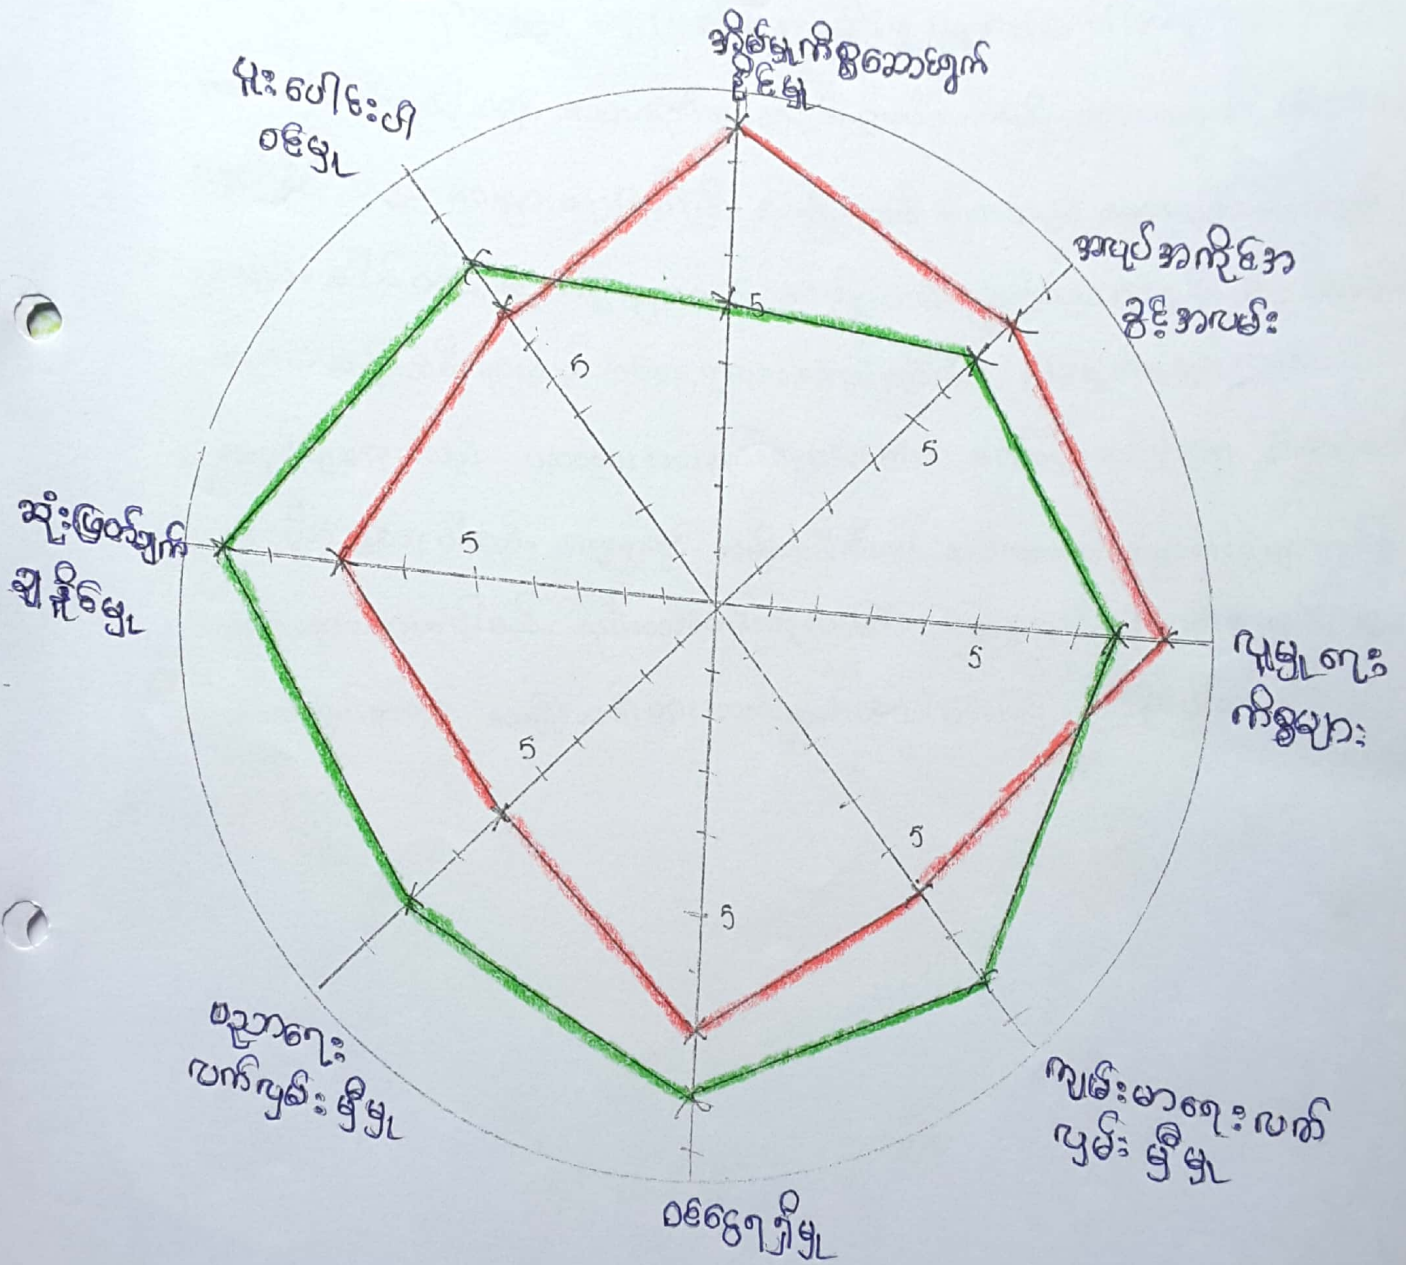 အိမ်မှုကိစ္စဆောင်ရွက်
နိုင်မှု
အလုပ်အကိုင်အ
ခွင့်အလမ်း
လူမှုရေး
ကိစ္စများ
ကျန်းမာရေးလက်
လှမ်းမှီမှု
ဝင်ငွေရရှိမှု
ပညာရေး
လက်လှမ်းမှီမှု
ဆုံးဖြတ်ချက်
ချနိုင်မှု
ပူးပေါင်းပါ
ဝင်မှု
5
5
5
5
5
5
5
5